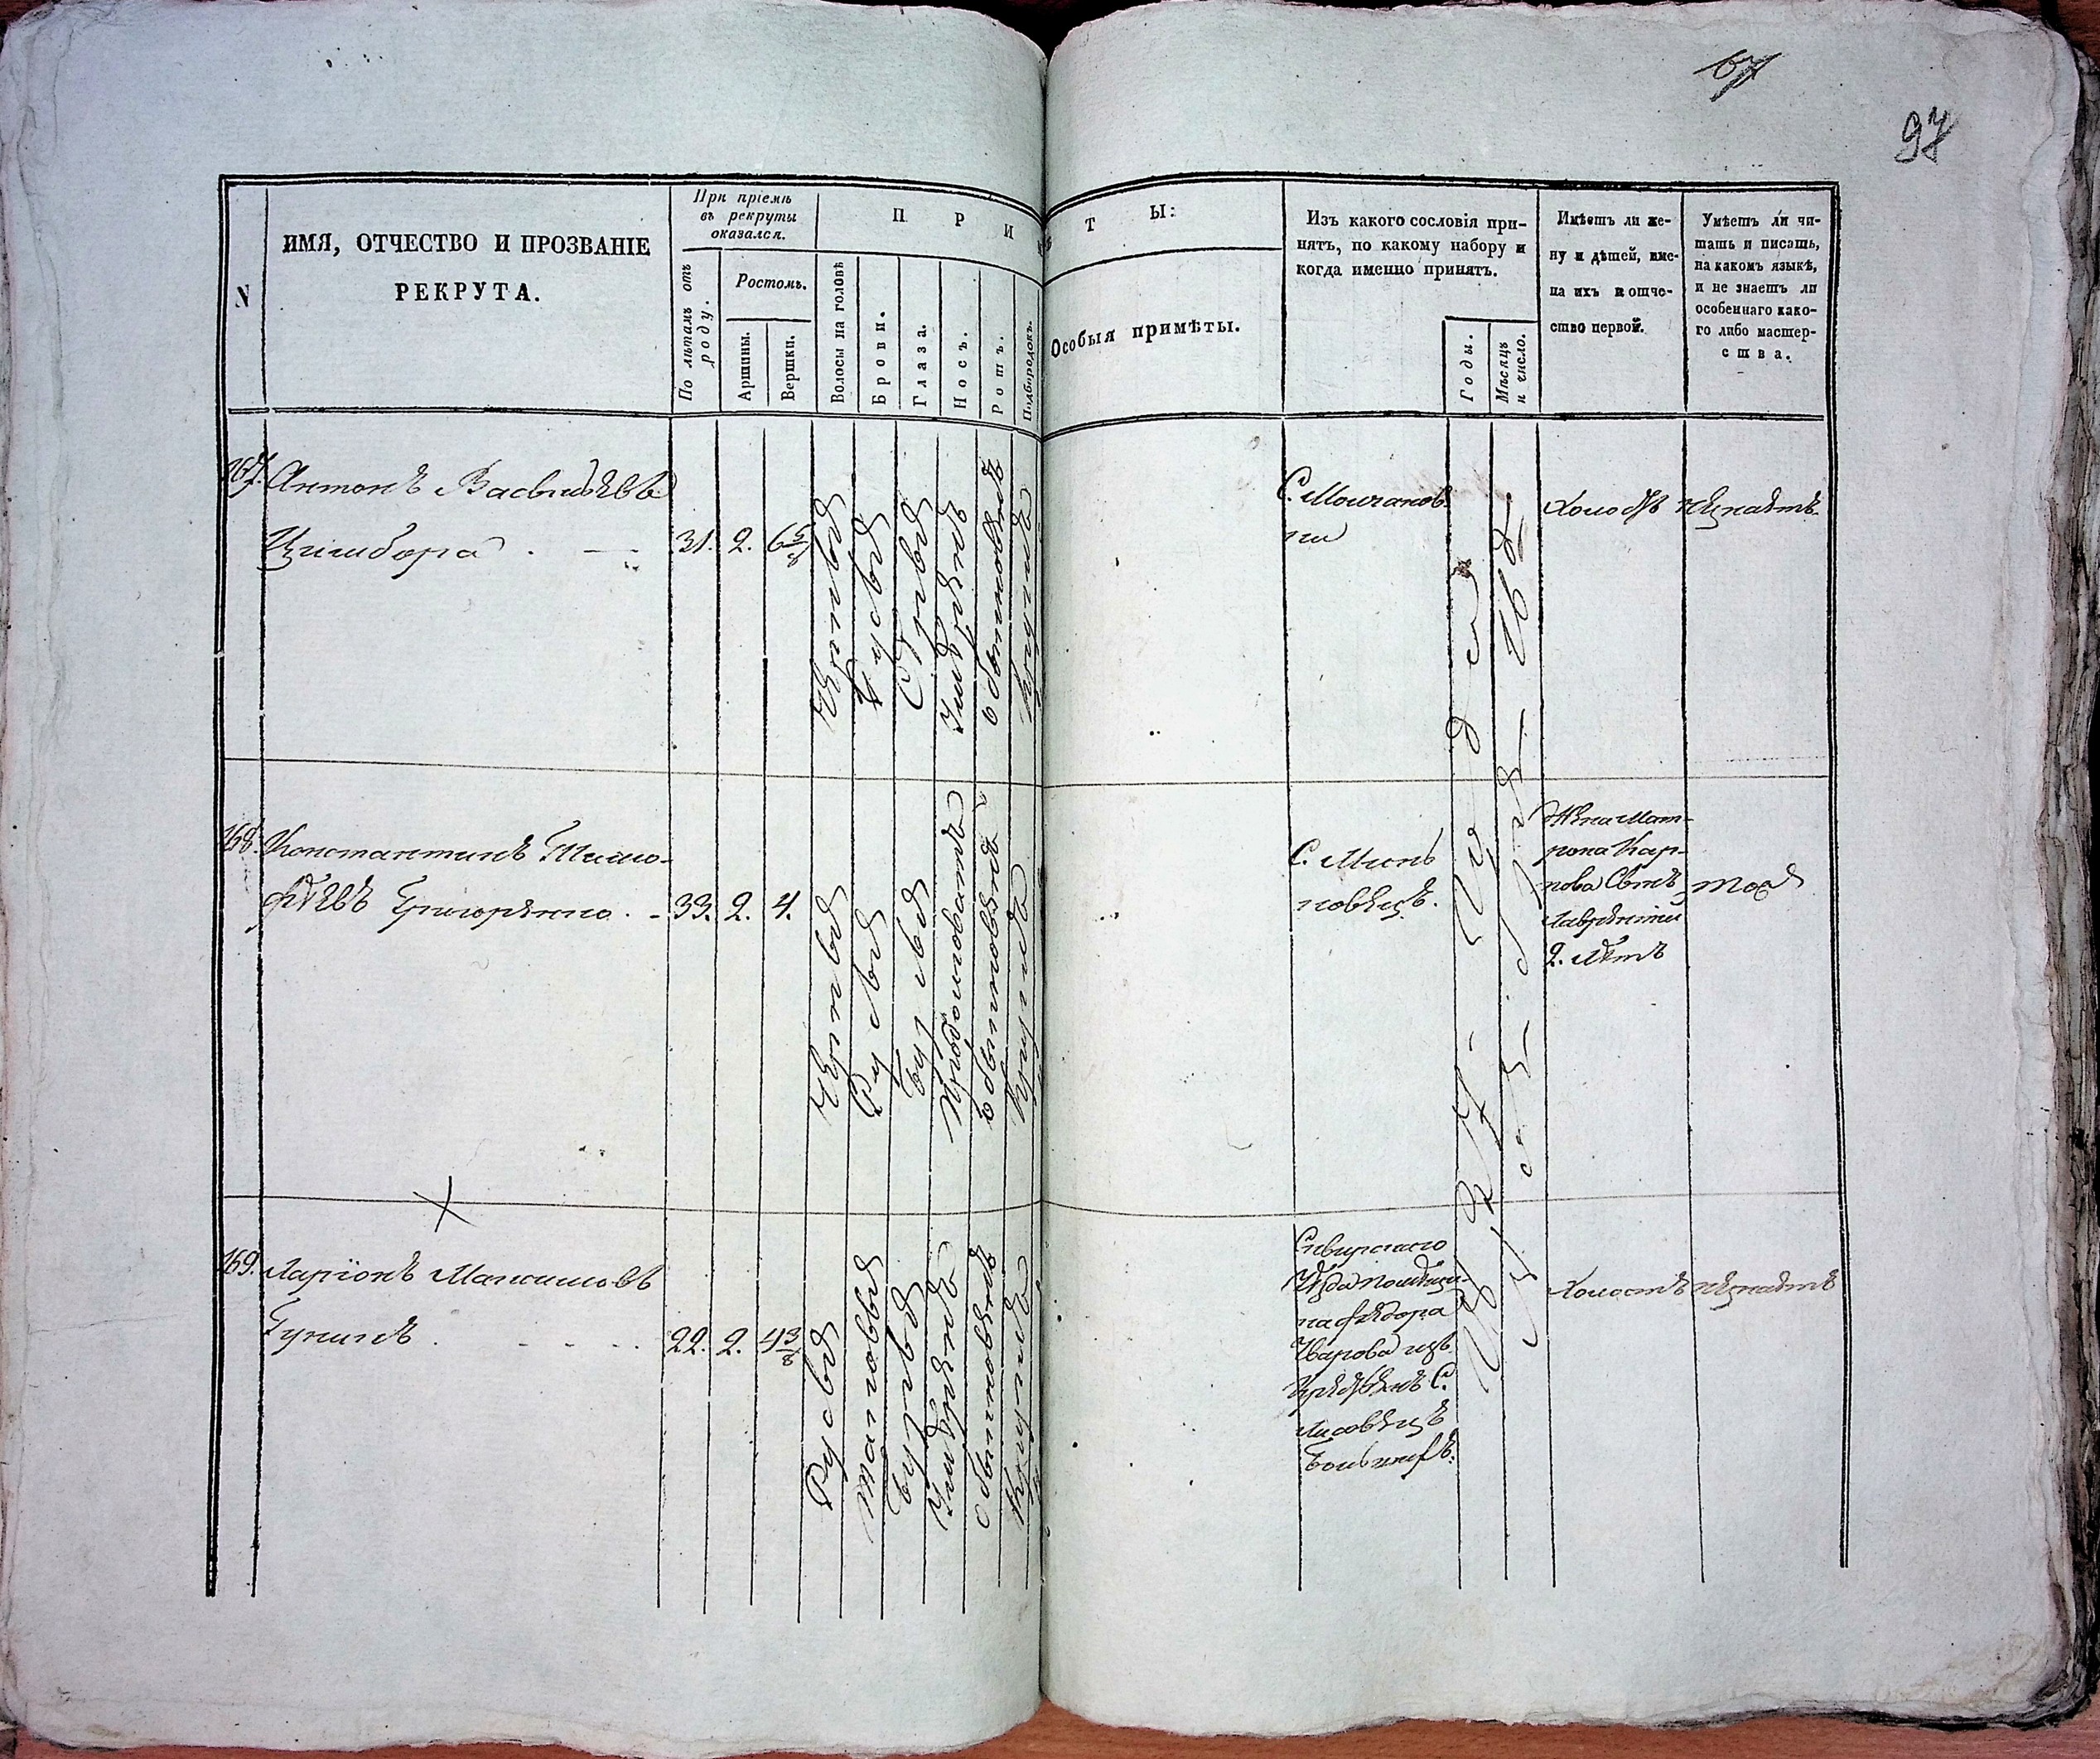 67
97
N
ИМЯ, ОТЧЕСТВО И ПРОЗВАНІЕ
РЕКРУТА.
При пріемѣ
въ рекруты
оказался.
По лѣтамъ отъ
роду.
Ростомъ.
Аршины.
Вершки.
ПРИМѢТЫ:
Волосы на головѣ
Брови.
Глаза.
Носъ.
Ротъ.
Подбородокъ.
Особыя примѣты.
Изъ какого сословія при-
нятъ, по какому набору и
когда именно принятъ.
Годы.
Мѣсяцъ
и число.
Имѣетъ ли же-
ну и дѣтей, име-
на ихъ и отче-
ство первой.
Умѣетъ ли чи-
тать и писать,
на какомъ языкѣ,
и не знаетъ ли
особеннаго како-
го либо мастер-
ства.
167. Антонъ Васильевъ
Цимбора
31. 2. 6 5/8
Русыя
Сѣрыя
Умѣренъ
обыкновенъ
Круглъ
С. Молчанов-
ки
Холостъ
незнаетъ
168. Константинъ Тимо-
фѣевъ Григоренко
33. 2. 4.
Русыя
обыкновенъ
Круглъ
С. Минь
ковецъ.
Жена Мат-
рона Кар-
пова Сынъ
Лаврентій
2. лѣтъ
тоже
169. Ларіонъ Максимовъ
22. 2. 4 3/8
Русыя
Таковыя
Умѣренъ
обыкновенъ
Круглъ
уѣзда помѣщи-
ка Федора
Уварова изъ
Крестьянъ С.
Лисовецъ
Холостъ
незнаетъ